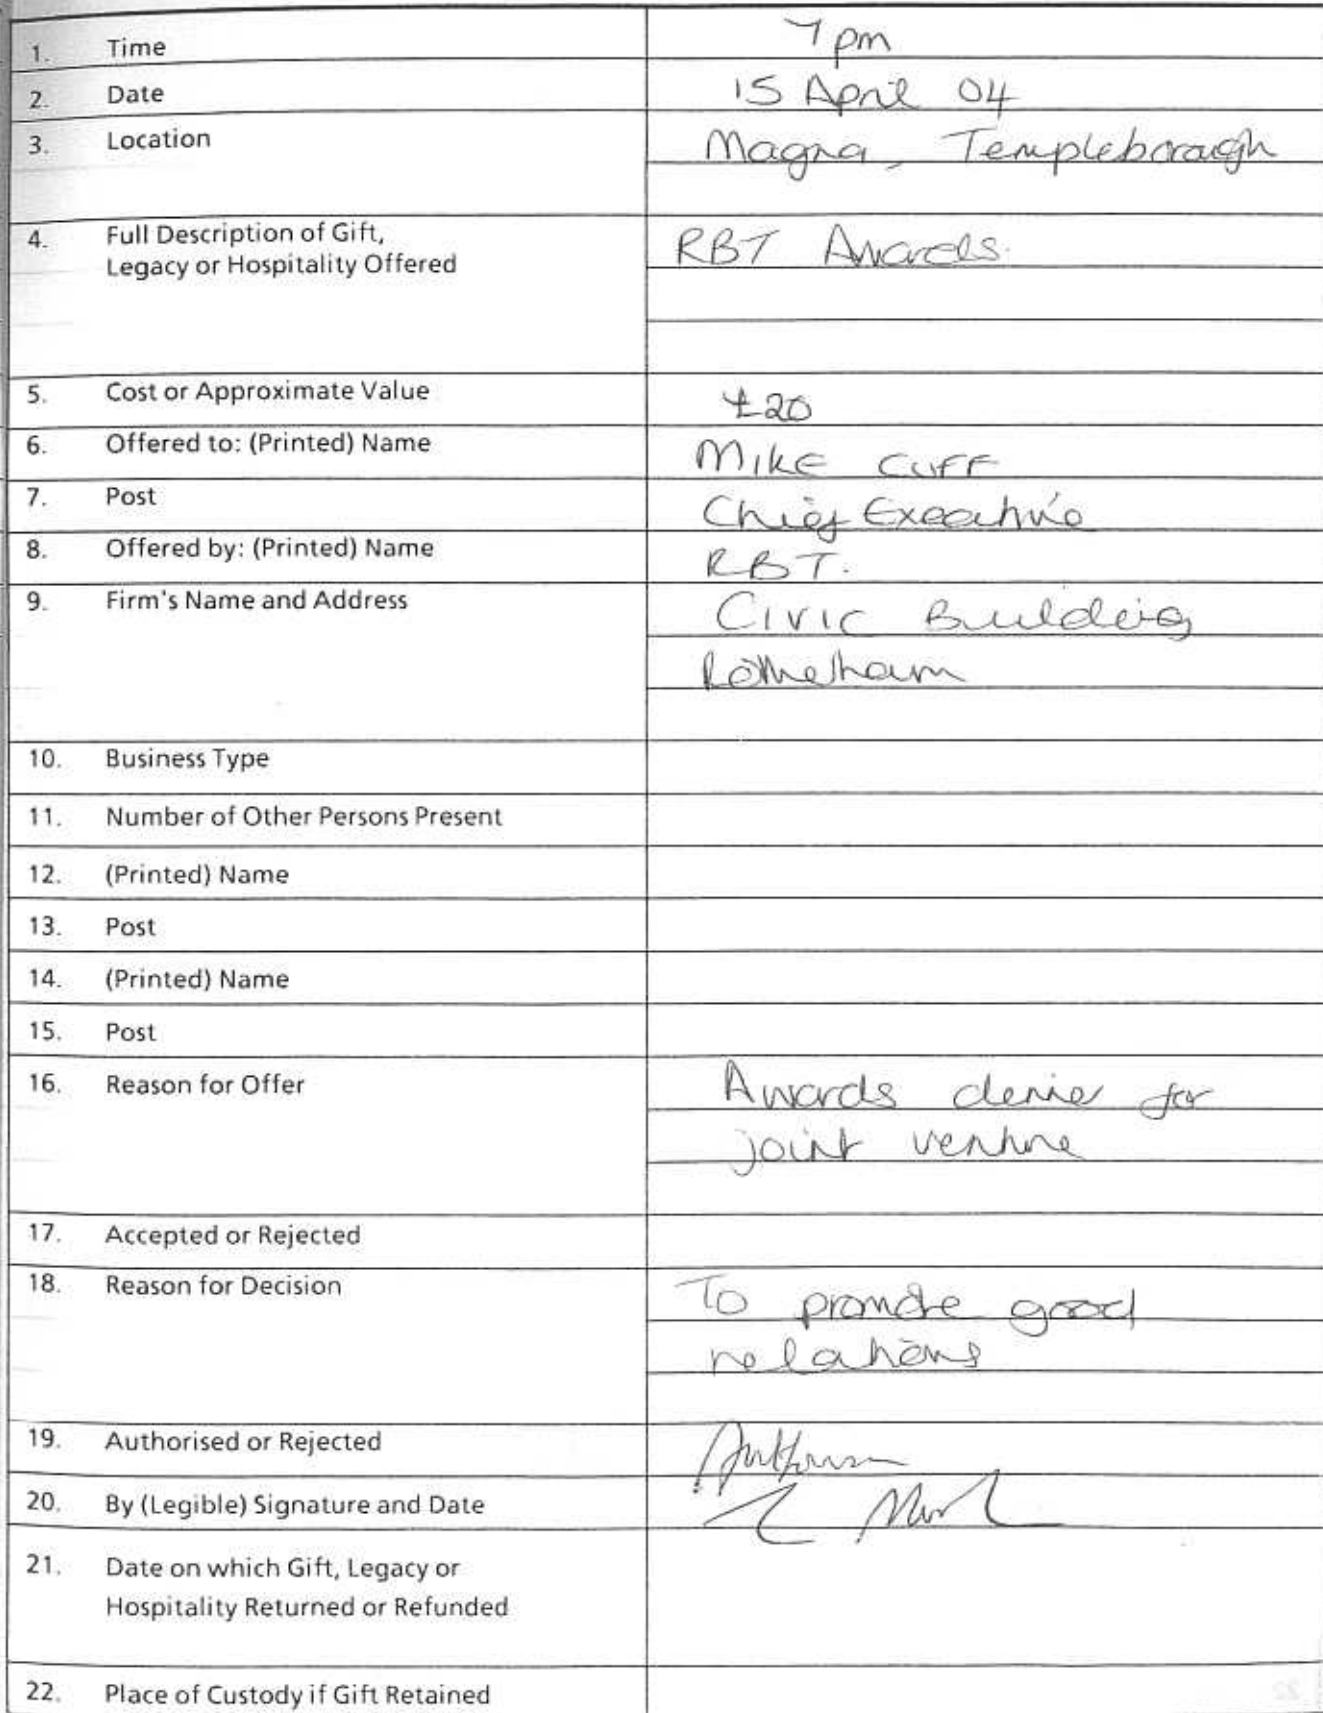 1. Time 7 pm
2. Date 15 April 04
3. Location Magna, Templeborough
4. Full Description of Gift, RBT Awards.
Legacy or Hospitality Offered
5. Cost or Approximate Value £20
6. Offered to: (Printed) Name MIKE CUFF
7. Post Chief Executive
8. Offered by: (Printed) Name RBT.
9. Firm's Name and Address Civic Building
Rotherham
10. Business Type
11. Number of Other Persons Present
12. (Printed) Name
13. Post
14. (Printed) Name
15. Post
16. Reason for Offer Awards for
joint venture
17. Accepted or Rejected
18. Reason for Decision To promote good
relations
19. Authorised or Rejected
20. By (Legible) Signature and Date
21. Date on which Gift, Legacy or
Hospitality Returned or Refunded
22. Place of Custody if Gift Retained